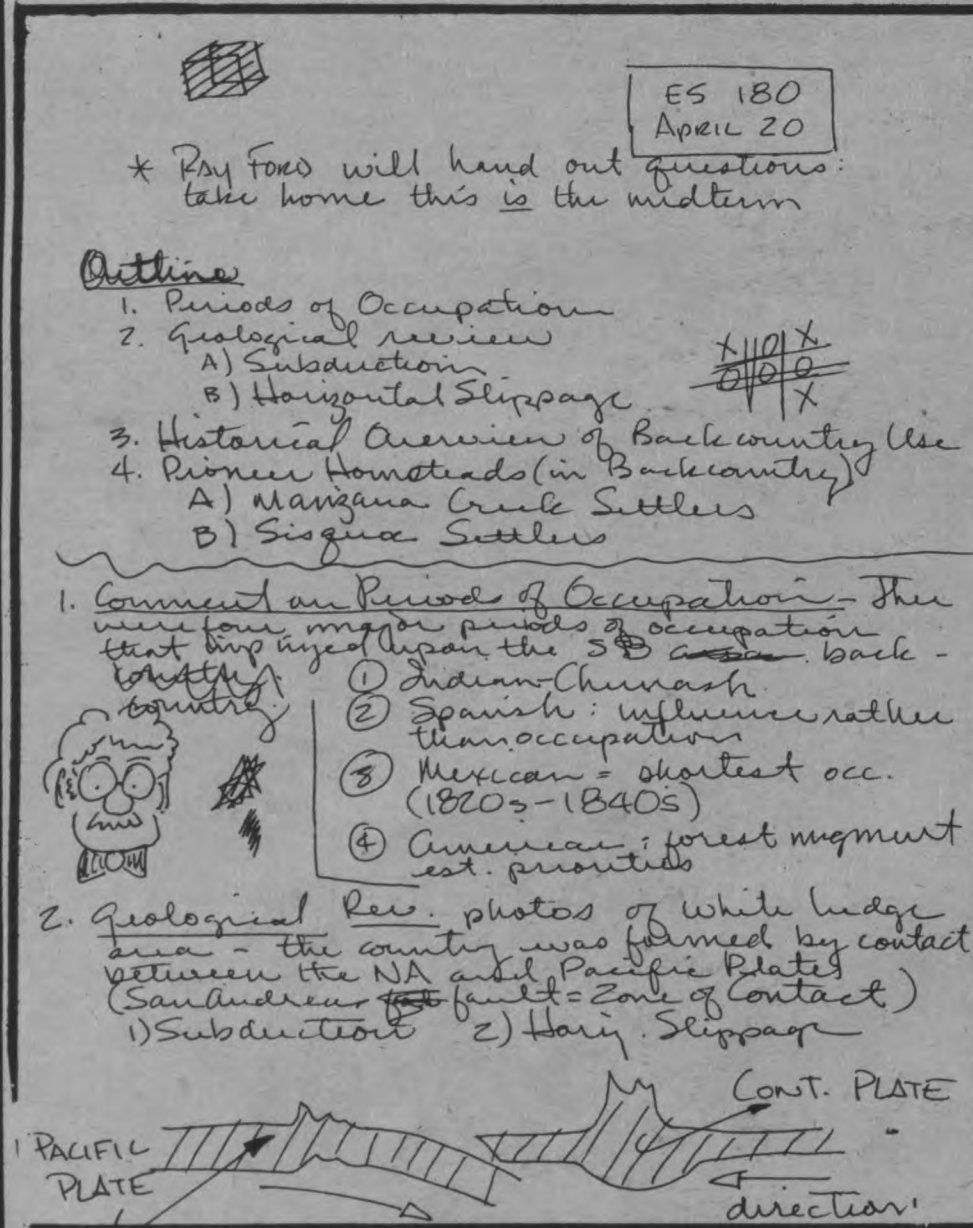 ES 180
APRIL 20
* Ray Ford will hand out questions:
take home this is the midterm
Outline
1. Periods of Occupation
2. Geological review
A) Subduction
B) Horizontal Slippage
X O X
O O O
X
3. Historical Overview of Backcountry Use
4. Pioneer Homesteads (in Backcountry)
A) Manzana Creek Settlers
B) Sisquoc Settlers
1. Comment on Periods of Occupation - There
were four major periods of occupation
that impinged upon the SB back-
country.
① Indian-Chumash
② Spanish: influence rather
than occupation
③ Mexican = shortest occ.
(1820s-1840s)
④ American: forest mgmunt
est. priorities
2. Geological Rev. photos of White Ledge
area - the country was formed by contact
between the NA and Pacific Plates
(San Andreas fault = Zone of Contact)
1) Subduction 2) Horiz. Slippage
CONT. PLATE
1 PACIFIC
PLATE
direction